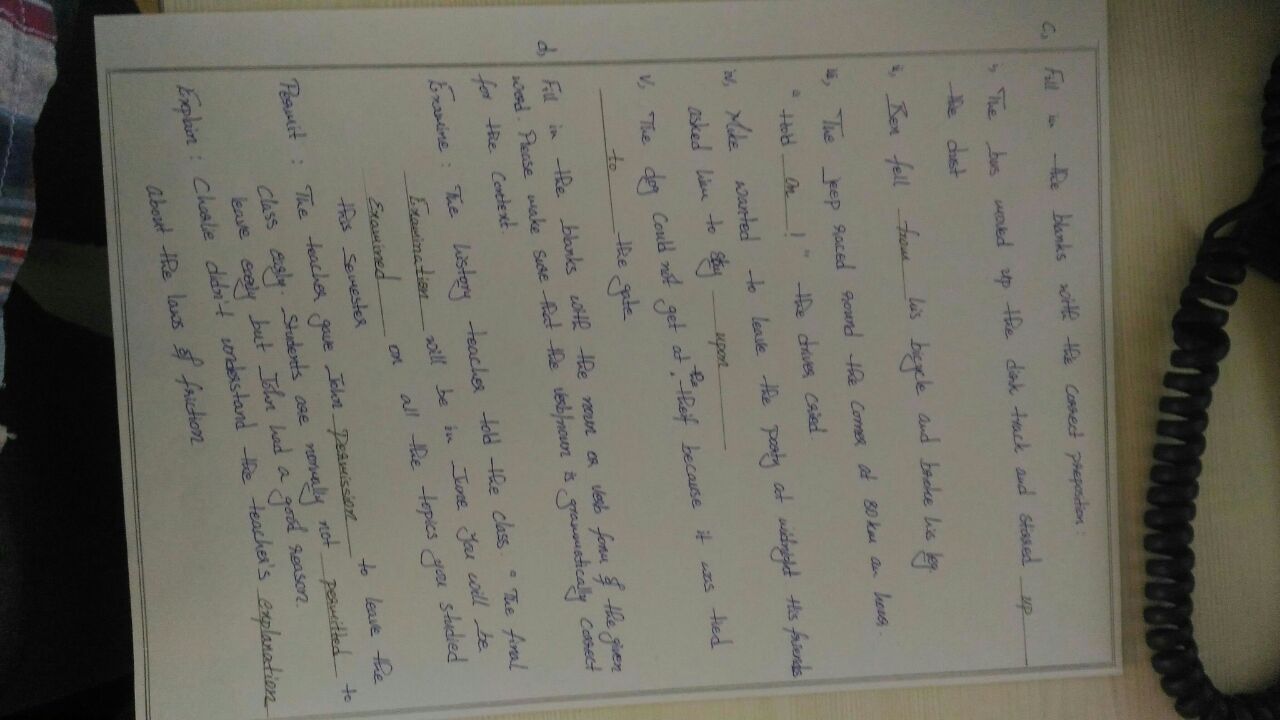 c, Fill in the blanks with the correct preposition:
i, The bus moved up the dirt track and stirred up
the dust
ii, Ben fell from his bicycle and broke his leg.
iii, The jeep raced round the corner at 80km an hour.
" Hold on ! " the driver cried
iv, Mike wanted to leave the party at midnight His friends
asked him to stay upon
v, The dog could not get at the thief because it was tied
to the gate
d, Fill in the blanks with the noun or verb form of the given
word. Please make sure that the verb/noun is grammatically correct
for the context
Examine : The history teacher told the class " The final
Examination will be in June You will be
Examined on all the topics you studied
this semester
Permit : The teacher gave John permission to leave the
class early. Students are normally not permitted to
leave early but John had a good reason.
Explain : Charlie didn't understand the teacher's explanation
about the laws of friction